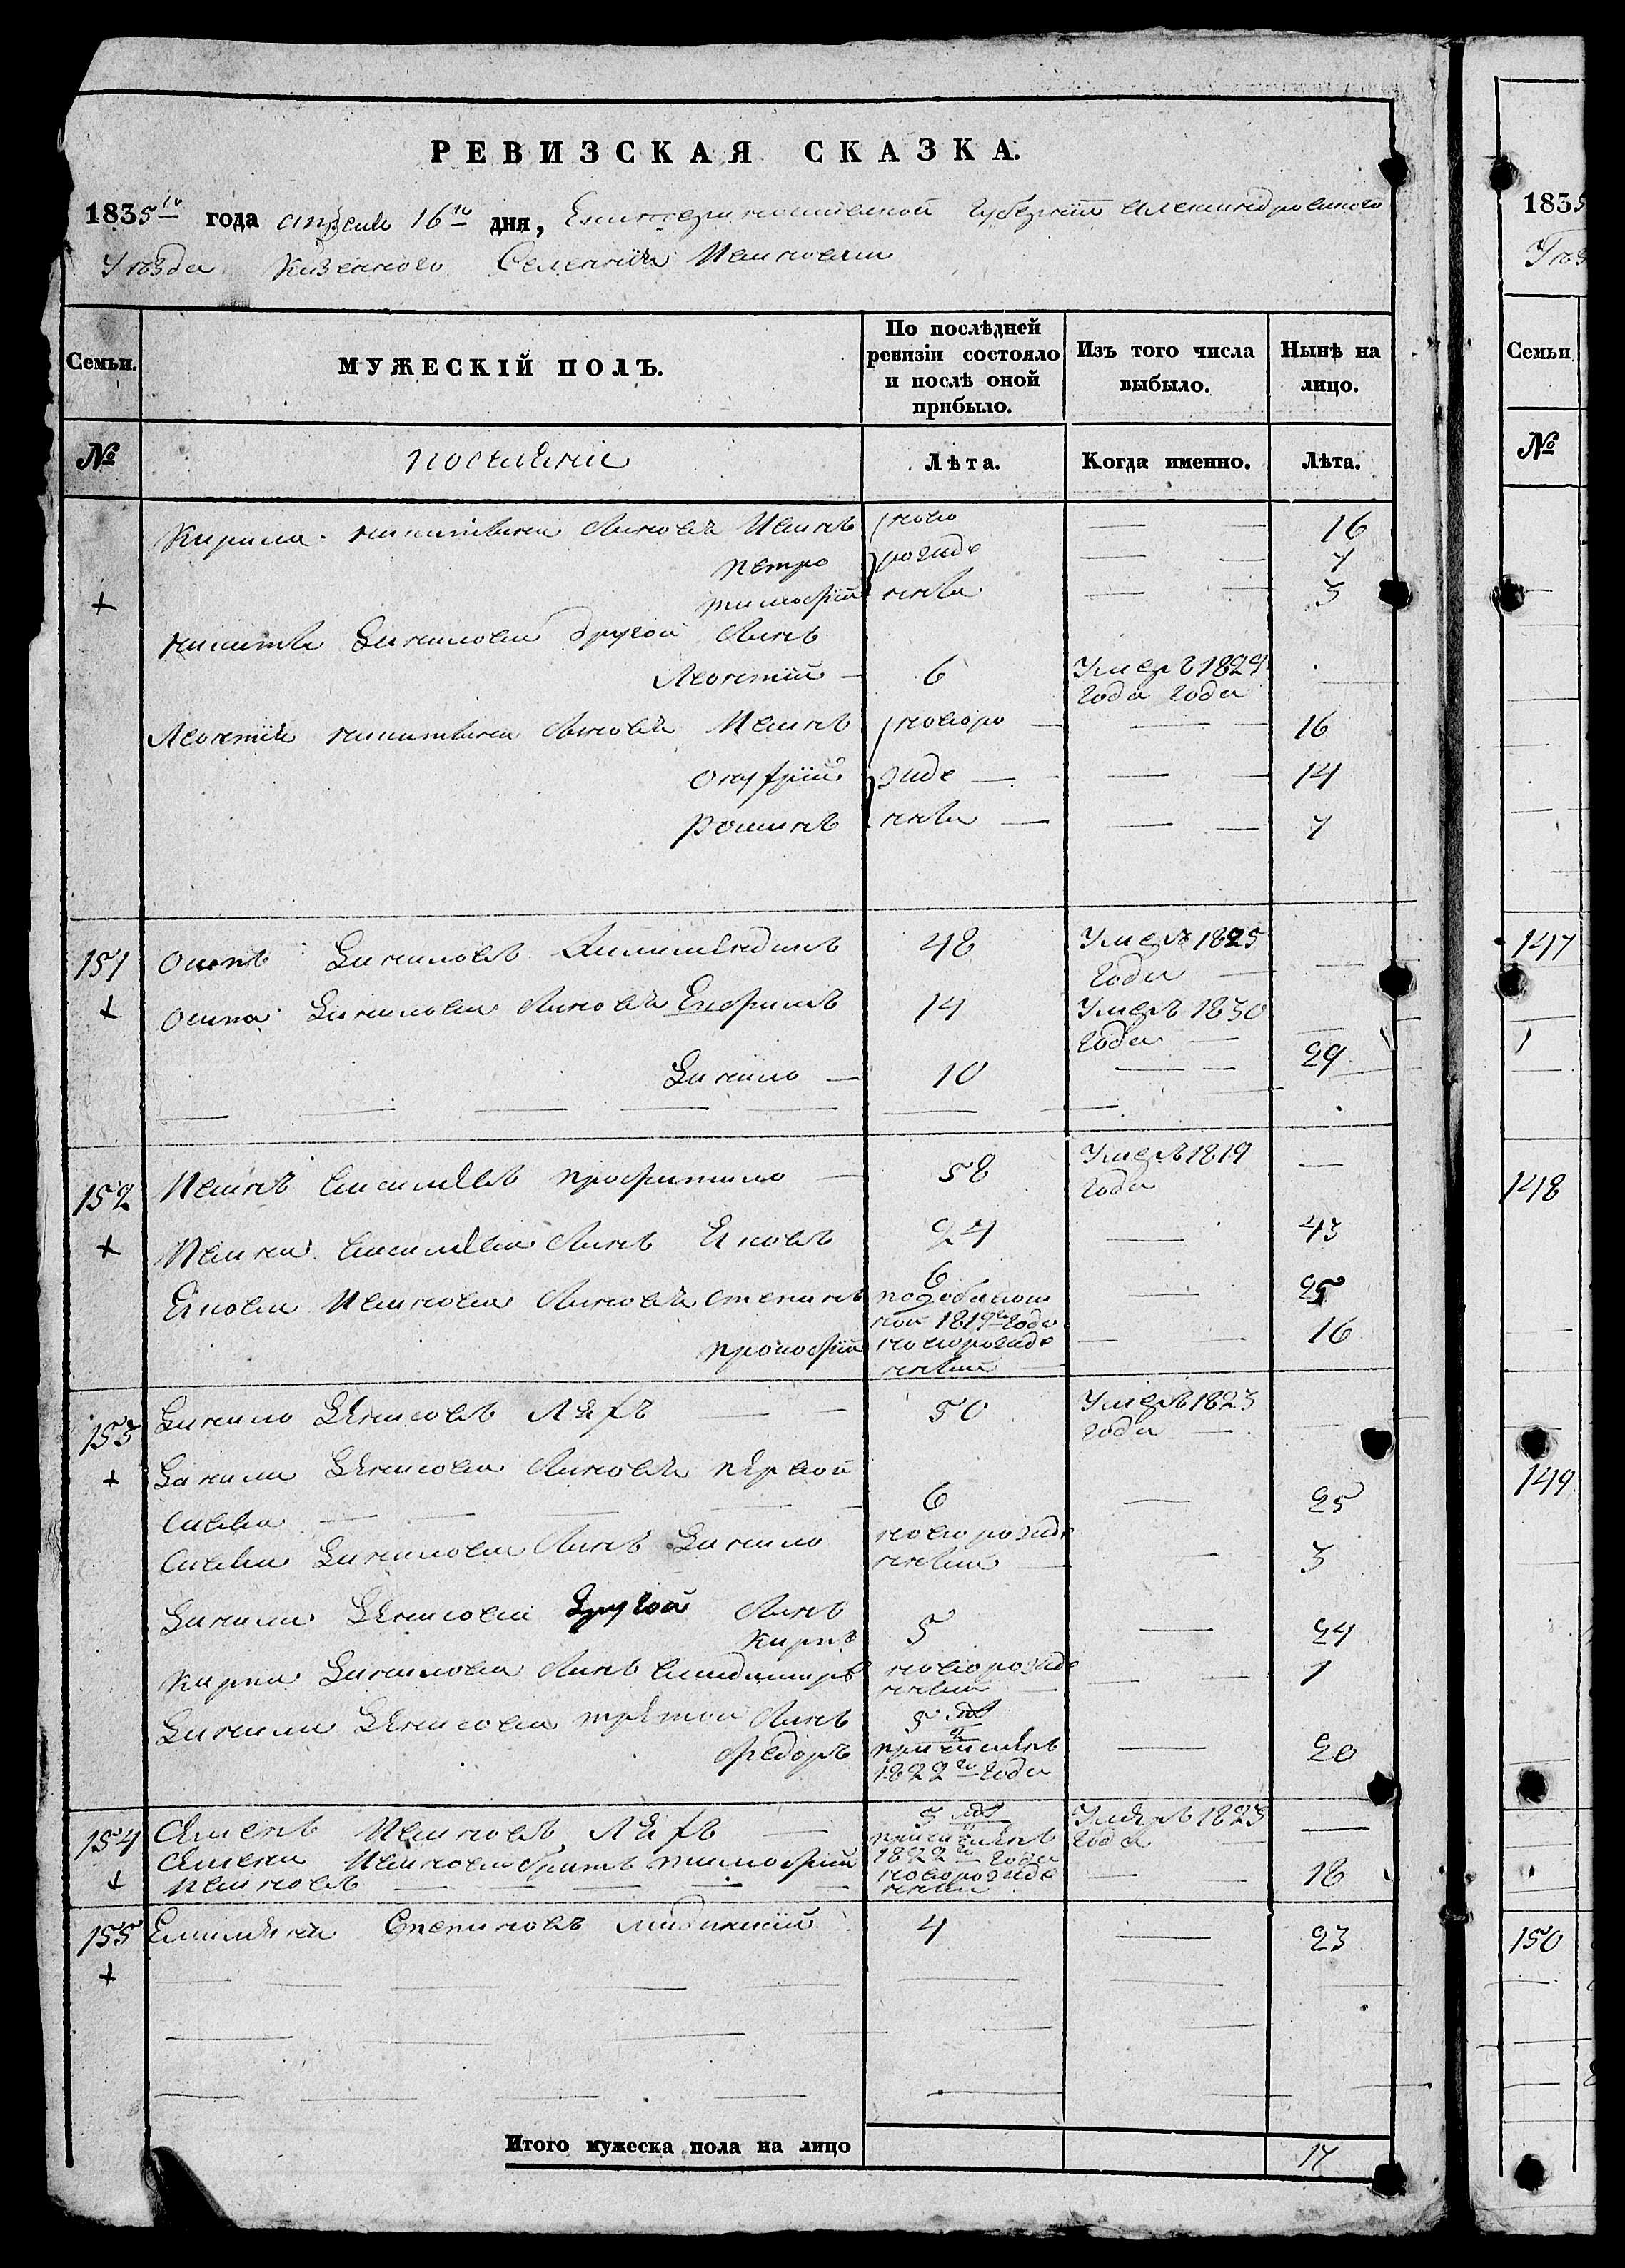 РЕВИЗСКАЯ СКАЗКА.
1835го года апреля 16го дня, Екатеринославской Губернии Александровского
Уезда Казенного Селения Ивановки
Семьи.
МУЖЕСКІЙ ПОЛЪ.
По послѣдней ревизіи состояло и послѣ оной прибыло.
Изъ того числа выбыло.
Нынѣ на лицо.
№
поселяне
Лѣта.
Когда именно.
Лѣта.
Кирила никитына сыновья Иванъ ново 16
Петро рожде 7
тимофій нны 3
никиты Данилова другой сынъ
Леонтій 6 Умеръ 1829 года года
Леонтія никитына сыновья Иванъ новоро 16
Онуфрій жде 14
Романъ нны 7
151 Осипъ Даниловъ 48 Умеръ 1825 года
Осипа Данилова сыновья Ефримъ 14 Умеръ 1830 года
Данило 10 29
152 Иванъ 58 Умеръ 1819 года
Ивана сынъ Яковъ 24 43
Якова Иванова сыновья степанъ 6 25
1819 года
прокофій новорожде нный 16
153 Данило Денисовъ 50 Умеръ 1823 года
Данила Денисова сыновья первой
савва 6 25
саввы Данилова сынъ Данило новорожде нный 3
Данила Денисова другой сынъ
Карпъ 5 24
Карпа Данилова сынъ новорожде нный 1
Данила Денисова третой сынъ
Федоръ 5 причисленъ 1822го года 20
154 Семенъ Ивановъ 3 причисленъ 1822го года Умеръ 1823 года
Семена Иванова братъ тимофій
Ивановъ новорожде нный 18
155 Степановъ 4 23
Итого мужеска пола на лицо 17
1835
Уез
Семьи
№
147
148
149
150